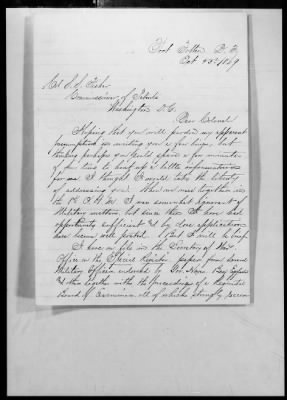 Fort Totten D. T.
Oct 25th 1869
Col S. S. Fisher
Commissioner of Patents
Washington D.C.
Dear Colonel
Hoping that you will pardon my apparent
presumption in writing you a few lines, but
thinking perhaps you could spare a few minutes
of time to
for me I thought I would take the liberty
of addressing you. When we were together in
the I was somewhat ignorant of
Military matters, but since then I have had
opportunity sufficient & by close application
have become well posted. But I will be brief
I have on file in the Secretary of War's
Office in the Special Registry, papers from several
Military Officers endorsed by Gov.
& others together with the proceedings of a Regimental
Board of Examiners all of which strongly recom